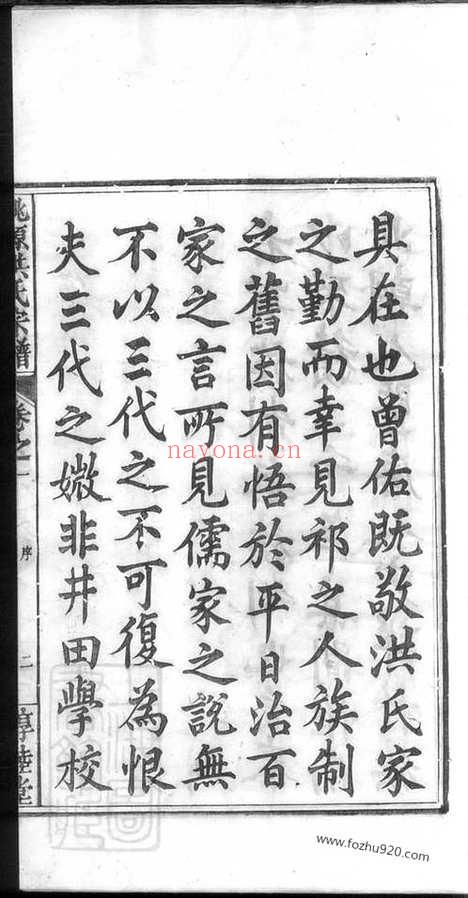 具在也曾佑既敬洪氏家
之勤而幸見祁之人族制
之舊因有悟於平日治百
家之言所見儒家之說無
不以三代之不可復為恨
夫三代之媺非井田學校
桃源洪氏宗譜 卷之一 序 二 惇睦堂
nayona.cn
www.fozhu920.com